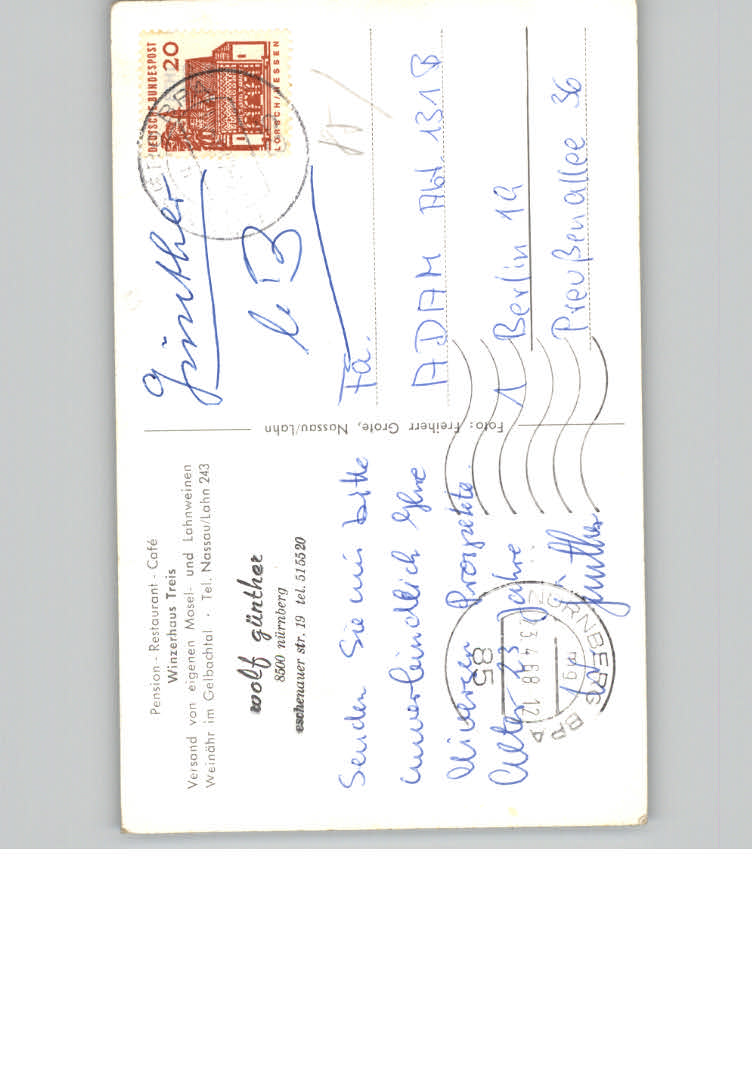 Pension - Restaurant - Café
Winzerhaus Treis
Versand von eigenen Mosel- und Lahnweinen
Weinähr im Gelbachtal · Tel. Nassau/Lahn 243
wolf günther
8500 nürnberg
eschenauer str. 19 tel. 515520
Senden Sie mir bitte
unverbindlich Ihre
Prospekte
Alter 23 Jahre
Günther
NÜRNBERG BPA
23.4.68 12
mg
85
Foto: Freiherr Grote, Nassau/Lahn
DEUTSCHE BUNDESPOST
20
LORSCH/HESSEN
Günther
85
Fa.
ADAM Abt. 131 B
1 Berlin 19
Preußenallee 36